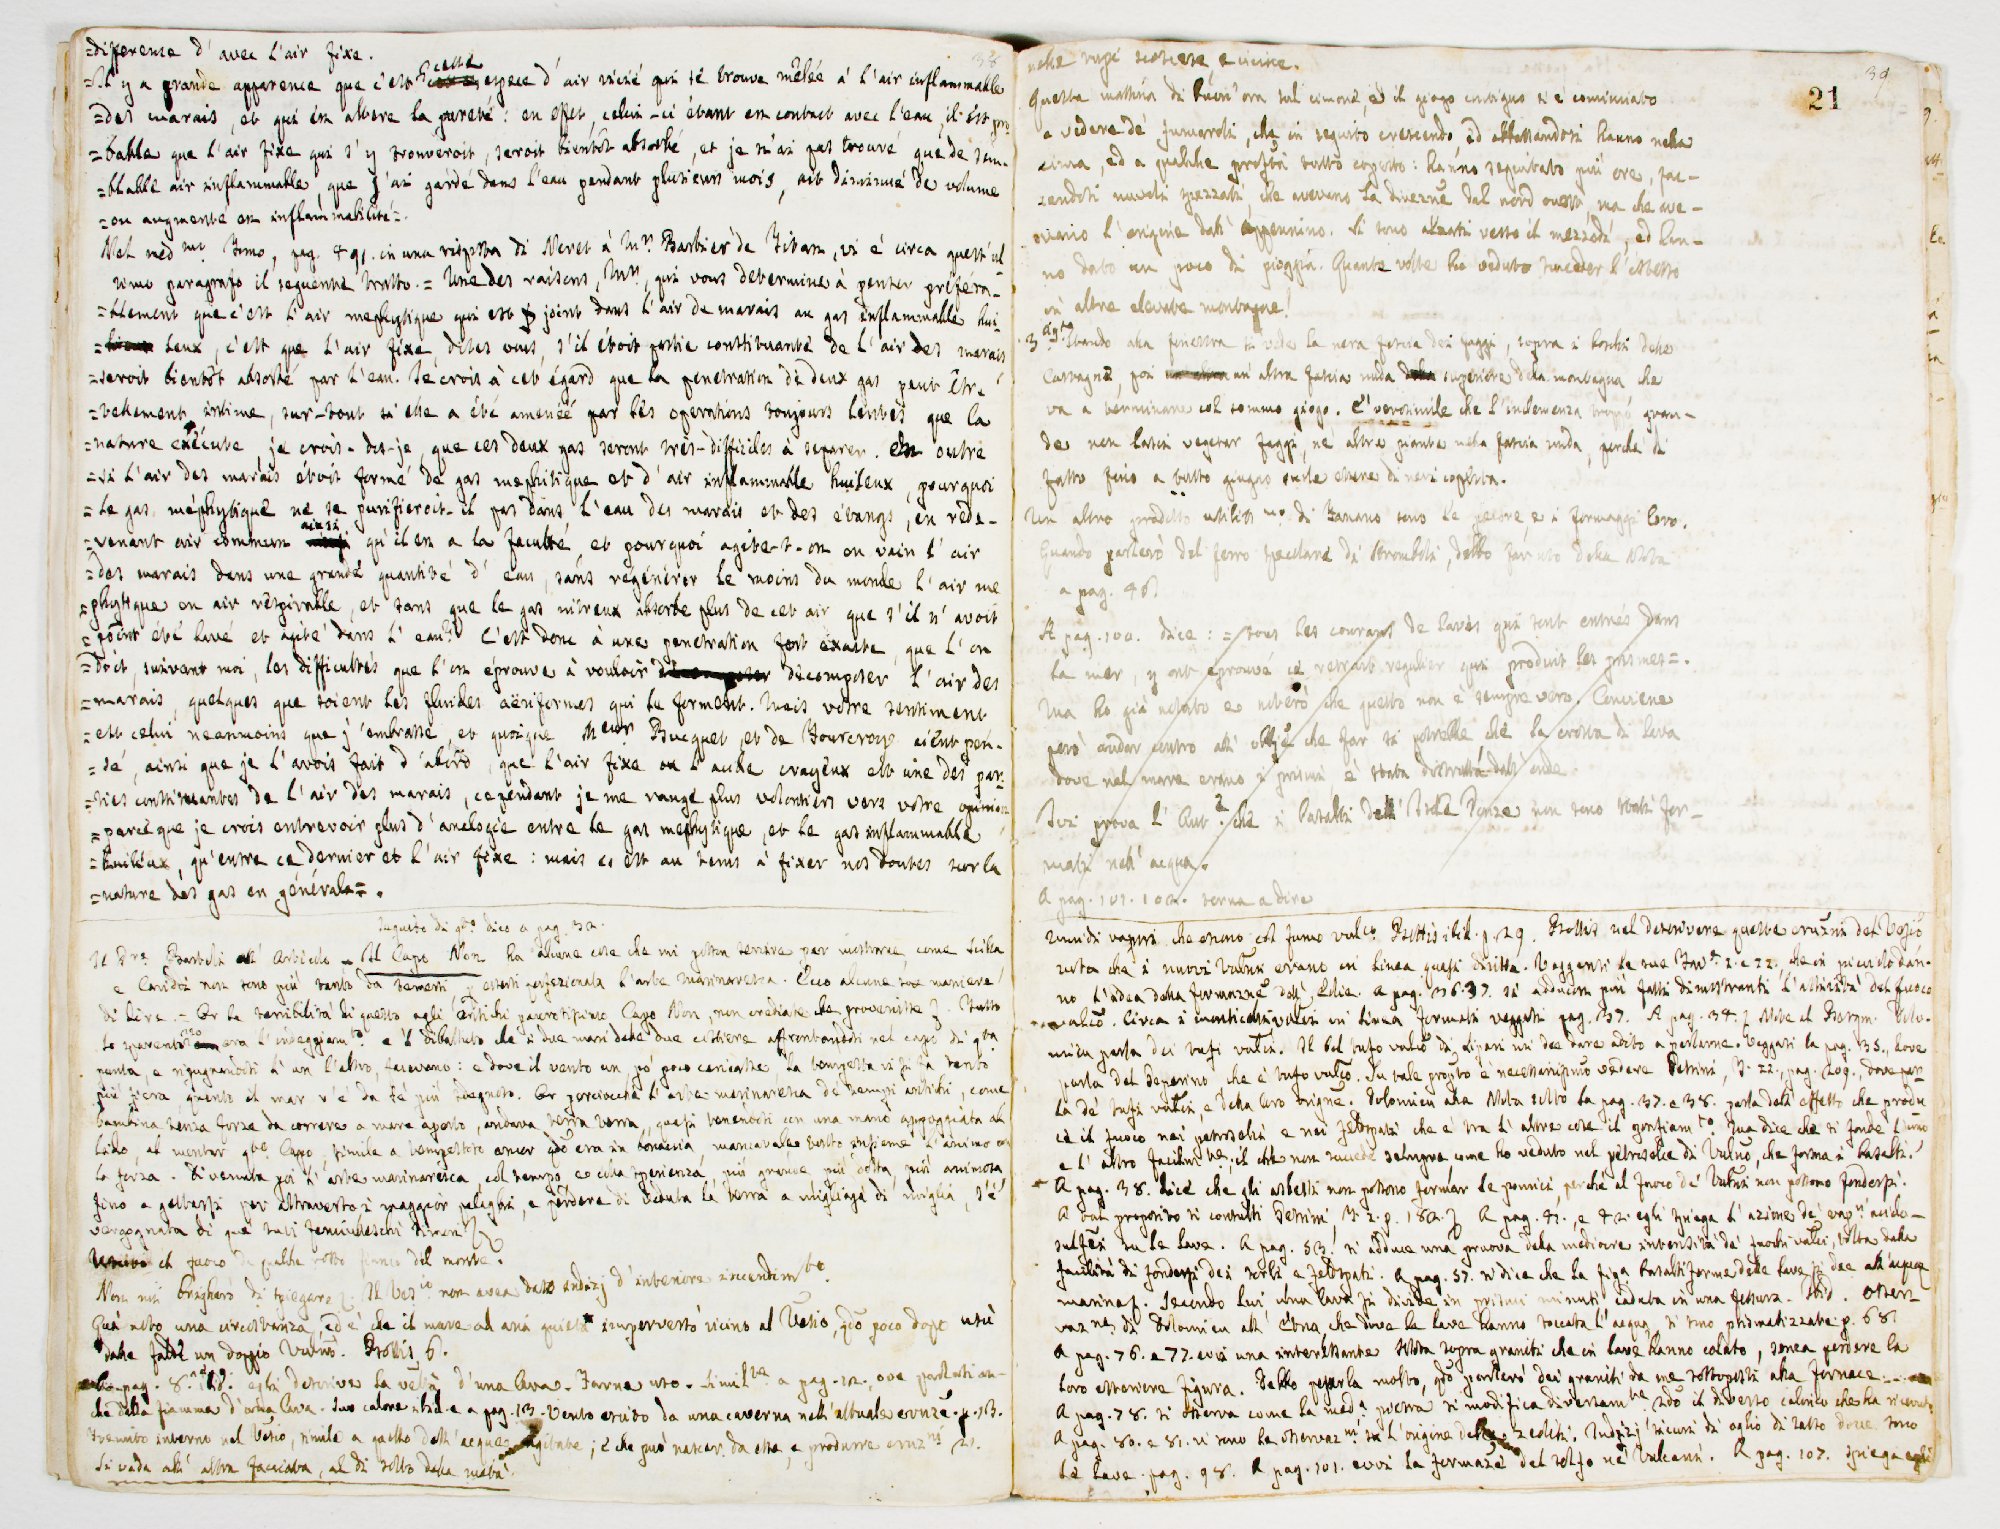 =difference d'avec l'air fixe.
=Il y a grande apparence que c'est cette espece d'air vicié qui se trouve mêlée à l'air inflammable
=des marais, et qui en altere la pureté: en effet, celui-ci étant en contact avec l'eau, il est pro
=bable que l'air fixe qui s'y trouveroit, seroit bientôt absorbé, et je n'ai pas trouvé que de sem-
=blable air inflammable, que j'ai gardé dans l'eau pendant plusieurs mois, ait diminué de volume
=ou augmenté en inflammabilité=.
Nel med.mo Tomo, pag. 491. in una risposta di Neret à Mr. Barbier de Tinan, vi è circa quest'ul
timo paragrafo il seguente tratto. = Une des raisons, Mr., qui vous determine à penser préfera-
=blement que c'est l'air mephytique qui est joint dans l'air de marais au gas inflammable hui-
=leux, c'est que l'air fixe, dites vous, s'il étoit partie constituante de l'air des marais
=seroit bientôt absorbé par l'eau. Je crois à cet égard que la penetration de deux gas peut être
=tellement intime, sur-tout si elle a été amenée par les operations toujours lentes que la
=nature exécute, je crois-dis-je, que ces deux gas seront très-difficiles à separer. En outre
=si l'air des marais étoit formé de gas mephitique et d'air inflammable huileux, pourquoi
=le gas méphytique ne se purifieroit-il pas dans l'eau des marais et des étangs, en rede-
=venant air commun ainsi qu'il en a la faculté, et pourquoi agite-t-on en vain l'air
=des marais dans une grande quantité d'eau, sans régénérer le moins du monde l'air me
=phytique en air respirable, et sans que le gas nitreux absorbe plus de cet air que s'il n'avoit
=point été lavé et agité dans l'eau? C'est donc à une penetration fort exacte, que l'on
=doit, suivant moi, les difficultés que l'on éprouve à vouloir décomposer l'air des
=marais, quelques que soient les fluides aëriformes qui le forment. Mais votre sentiment
=est celui neanmoins que j'embrasse, et quoique Meur Bucquet, et de Fourcroy aient pen-
=sé, ainsi que je l'avois fait d'abord, que l'air fixe ou l'acide crayeux est une des par-
=ties constituantes de l'air des marais, cependant je me range plus volontiers vers votre opinion
=parce que je crois entrevoir plus d'analogie entre le gas mephytique, et le gas inflammable
=huileux, qu'entre ce dernier et l'air fixe: mais es est au tems à fixer nos doutes sur la
=nature des gas en générale=.
seguito di q.to dico a pag. 32.
Il Dre. Bartoli all'Articolo - Il Capo Non ha alcune cose che mi posson servire per mostrare, come Scilla
e Cariddi non sono più tanto da temersi esserti perfezionata l'arte marinaresca. Ecco alcune sue maniere
di dire. - Or la terribilità di questo agli antichi paurosissimo Capo Non, non crediate che provenisse
e 'l dibattito che i due mari delle due costiere affrontandosi nel capo di q.ta
punta, e ripugnandosi l'un l'altro, facevano: e dove il vento un po' poco caricasse, la tempesta vi si fa tanto
più fiera quanto il mar v'è da sè più sdegnoso. Or perciocchè l'arte marinaresca de' tempi antichi, come
bambina senza forze da correre a mare aperto, andava terra terra, quasi tenendosi con una mano appoggiata al
lido, al montar q.to Capo, simile a tempestoso ancor q.do era in bonaccia, mancavale tosto insieme l'animo con
la forza. Divenuta poi l'arte marinaresca, col tempo, e colla sperienza, più grande, più dotta, più animosa
fino a gettarsi per attraverso i maggior pelaghi, e perdere di veduta la terra a migliaja di miglia, s'è
vergognata di que' suoi femminileschi timori
il fuoco da qualche rotto fianco del monte.
Non mi brigherò di spiegare Il Ves.io non avea dato indizj d'interiore incendim.to
Quà noto una circostanza, ed è che il mare ad aria quieta imperversò vicino al Ves.io, q.do poco dopo uscì
dalle falde un doppio Vulc.no. Bottis 6.
pag. 8. egli descrive la velo.tà d'una lava. Farne uso. Simil.te a pag. 12., ove parlasi an-
che della fiamma d'una lava. Suo calore ibid. e a pag. 13. Vento uscito da una caverna nell'attuale eruz.e p. 13.
Tremito interno nel Ves.io, simile a quello dell'acque agitate; e che può nascer da esse, e produrre eruz.ni
Si vada all'altra facciata, al di sotto della metà.
38
39
21
nelle rupi scoscese e vicine.
Questa mattina di buon'ora sul cimone, e il giogo contiguo si è cominciato
a vedere de' fumaroli, che in seguito crescendo ed affollandosi hanno nella
cima, ed a qualche prof.tà tutto coperto: hanno seguitato più ore, fac-
cendosi nuvoli spezzati, che avevano la direz.ne dal nord ouest, ma che ave-
vano l'origine dall'Appennino. Si sono alzati verso il mezzodì, ed han-
no dato un poco di pioggia. Quante volte ho veduto succeder l'istesso
in altre elevate montagne!
3 Ag.to Stando alla finestra si vede la nera fascia dei faggi, sopra i boschi delle
Castagne, poi un'altra fascia nuda superiore della montagna che
va a terminare col sommo giogo. E' verosimile che l'inclemenza troppo gran-
de non lasci vegetar faggi, nè altre piante nella fascia nuda, perchè di
fatto fino a tutto giugno suole essere di nevi coperta.
Un altro prodotto utiliss.mo di Fanano sono le pecore e i formaggi loro.
Quando parlerò del ferro speculare di Stromboli, debbo far uso della Nota
a pag. 46.
A pag. 100. dice: = tous les courans de laves qui sont entrés dans
la mer, y ont éprouvé ce retrait regulier qui produit les prismes=.
Ma ho già notato e noterò che questo non è sempre vero. Conviene
però andar contro all'obbje.ne che far si potrebbe che la crosta di lava
dove nel mare erano i prismi è stata distrutta dall'onde
Ivi prova l'Aut.e che i basalti dell'Isole Ponze non sono stati for-
mati nell'acqua.
A pag. 101. 102. torna a dire
umidi vapori che escono col fumo vulc.co Bottis ibid. p. 29. Bottis nel descrivere queste eruz.ni del Ves.io
nota che i nuovi Vulc.ni erano in linea quasi diritta. Veggansi le sue Tav.e 1. e 22., che in piccolo dan-
no l'idea della formaz.ne dell'Eolie. A pag. 36. 37. si adducon più fatti dimostranti l'attività del fuoco
vulc.co. Circa i monticelli vulc.ci in linea, formati veggasi pag. 37. A pag. 34. Dolo-
mieu parla dei tufi vulc.ci. Il bel tufo vulc.co di Lipari mi dee dare adito a parlarne. Veggasi la pag. 35., dove
parla del Peperino che è tufo vulc.co. Su tale prop.to è necessariss.mo vedere Petrini, T. 22., pag. 209., dove par-
la de' tufi vulc.ci, e della loro origine. Dolomieu alla Nota sotto la pag. 37. e 38. parla dell'effetto che produ
ce il fuoco nei petroselci e nei feldspati che è tra l'altre cose il gonfiam.to. Ma dice che si fonde l'uno
e l'altro facilm.te, il che non succede sempre come ho veduto nel petroselce di Vulc.no, che forma i basalti.
A pag. 38. dice che gli asbesti non possono formar le pomici, perchè al fuoco de' Vulc.ni non possono fondersi.
A tal proposito si consulti Petrini, T. 2. p. 182. A pag. 41., e 42. egli spiega l'azione de' vap.ri acido-
sulfurei su le lave. A pag. 53. si adduce una pruova della mediocre intensità de' fuochi vulc.ci, tolta dalla
facilità di fondersi dei scorli e feldspati. A pag. 57. si dice che la figura basaltiforme delle lave si dee all'acqua
marina. Secondo lui una lava si divide in prismi minuti caduta in una fessura. Ibid. Osser-
vaz.ne di Dolomieu all'Etna, che dove le lave hanno toccata l'acqua, si sono prismatizzate p. 68.
A pag. 76. e 77. evvi una interessante Nota sopra graniti che in lave hanno colato, senza perdere la
loro esteriore figura. Debbo pesarla molto, q.do parlerò dei graniti da me sottoposti alla fornace.
A pag. 78. si osserva come la med.a pietra si modifica diversam.te secondo il diverso calorico che ha ricevuto
A pag. 80. e 81. vi sono le osservaz.ni su l'origine delle zeoliti. Indizj sicuri di oglio di sasso dove sono
le lave. pag. 98. A pag. 101. evvi la formaz.ne del solfo ne' Vulcani. A pag. 107. spiega egli